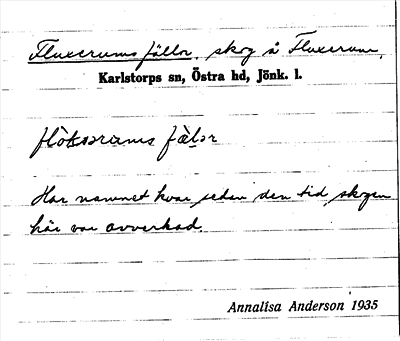 Fluxerums fällor, skog å Fluxerum,
Karlstorps sn, Östra hd, Jönk. l.
fälər
Har namnet kvar sedan den tid skogen
här var avverkad.
Annalisa Anderson 1935